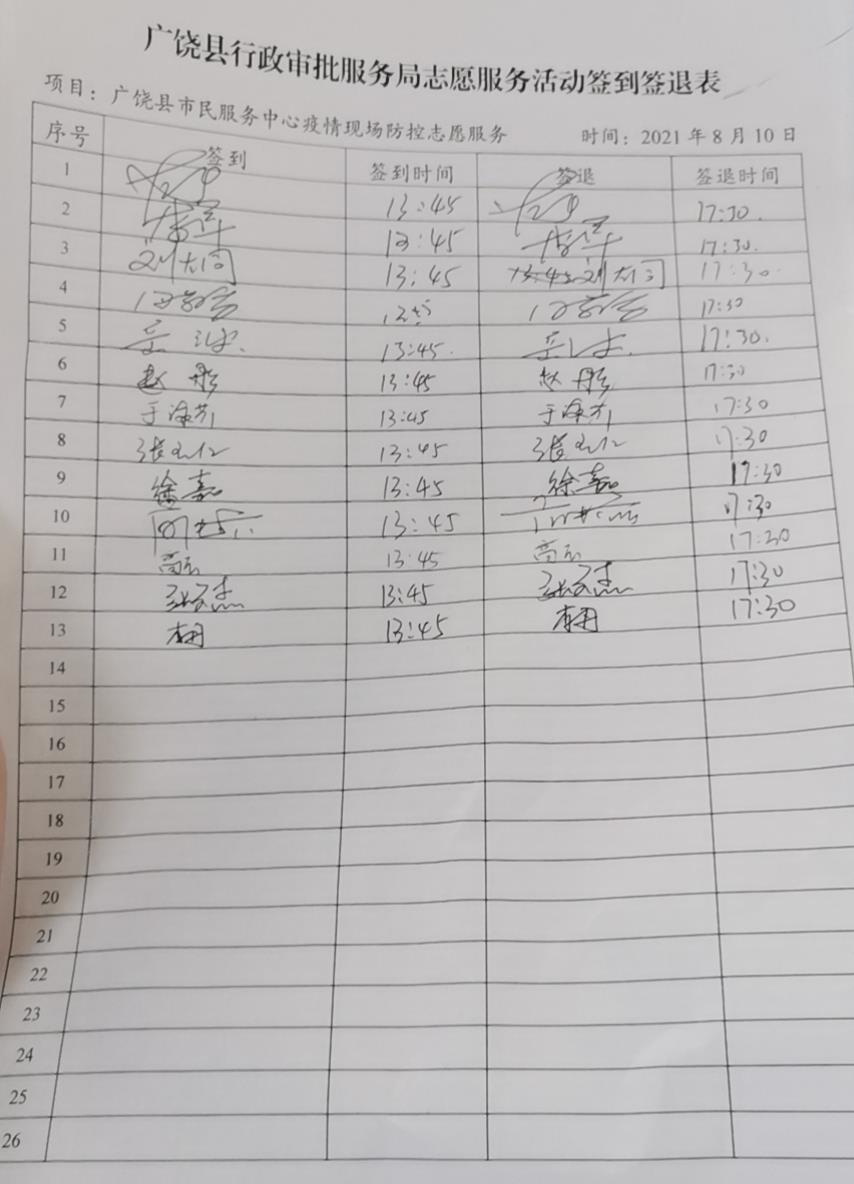 广饶县行政审批服务局志愿服务活动签到签退表
项目：广饶县市民服务中心疫情现场防控志愿服务 时间：2021年8月10日
序号 签到 签到时间 签退 签退时间
1 13:45 17:30.
2 13:45 17:30.
3 刘大同 13:45 刘大同 17:30.
4 17:30
5 13:45. 17:30.
6 赵彤 13:45 赵彤 17:30
7 于海芹 13:45 于海芹 17:30
8 13:45 17:30
9 徐嘉 13:45 徐嘉 17:30
10 13:45 17:30
11 13:45 17:30
12 13:45 17:30
13 13:45 17:30
14
15
16
17
18
19
20
21
22
23
24
25
26